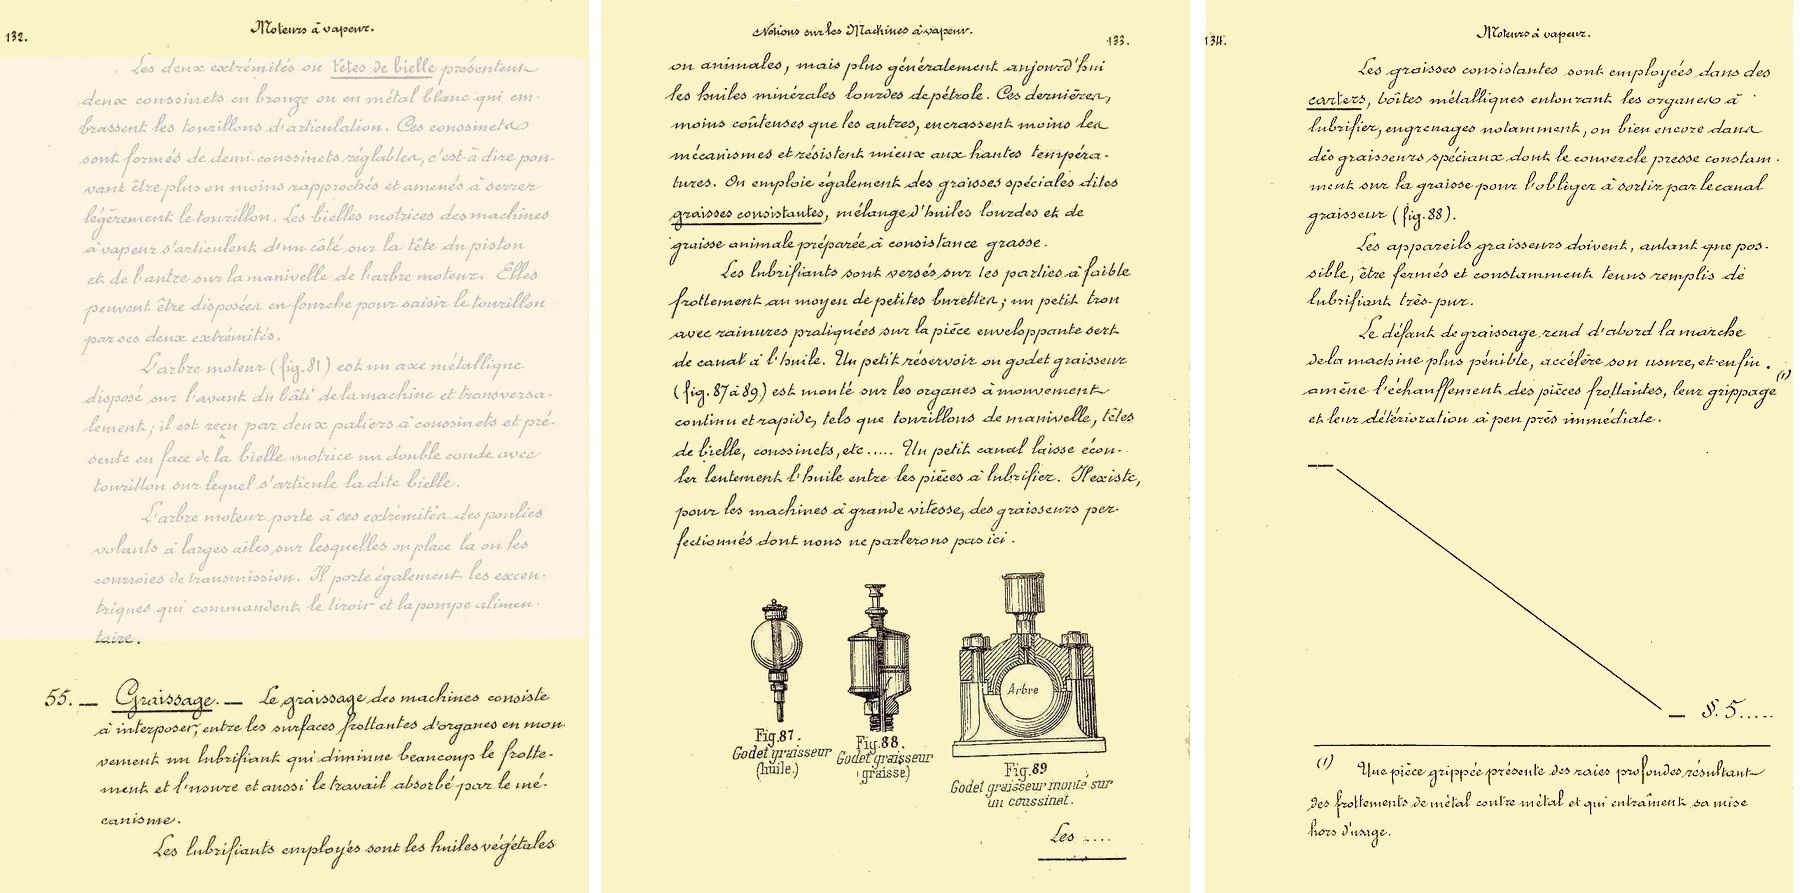 132.
Moteurs à vapeur.
Les deux extrémités ou têtes de bielle présentent
deux coussinets en bronze ou en métal blanc qui em-
brassent les tourillons d'articulation. Ces coussinets
sont formés de demi-coussinets réglables, c'est-à-dire pou-
vant être plus ou moins rapprochés et amenés à serrer
légèrement le tourillon. Les bielles motrices des machines
à vapeur s'articulent d'un côté sur la tête du piston
et de l'autre sur la manivelle de l'arbre moteur. Elles
peuvent être disposées en fourche pour saisir le tourillon
par ses deux extrémités.
L'arbre moteur (fig. 81) est un axe métallique
disposé sur l'avant du bâti de la machine et transversa-
lement; il est reçu par deux paliers à coussinets et pré-
sente en face de la bielle motrice un double coude avec
tourillon sur lequel s'articule la dite bielle.
L'arbre moteur porte à ses extrémités des poulies
volants à larges ailes sur lesquelles on place la ou les
courroies de transmission. Il porte également les excen-
triques qui commandent le tiroir et la pompe alimen-
taire.
55. — Graissage. — Le graissage des machines consiste
à interposer, entre les surfaces frottantes d'organes en mou-
vement un lubrifiant qui diminue beaucoup le frotte-
ment et l'usure et aussi le travail absorbé par le mé-
canisme.
Les lubrifiants employés sont les huiles végétales
Notions sur les Machines à vapeur.
133.
ou animales, mais plus généralement aujourd'hui
les huiles minérales lourdes de pétrole. Ces dernières,
moins coûteuses que les autres, encrassent moins les
mécanismes et résistent mieux aux hautes tempéra-
tures. On emploie également des graisses spéciales dites
graisses consistantes, mélange d'huiles lourdes et de
graisse animale préparée à consistance grasse.
Les lubrifiants sont versés sur les parties à faible
frottement au moyen de petites burettes; un petit trou
avec rainures pratiquées sur la pièce enveloppante sert
de canal à l'huile. Un petit réservoir ou godet graisseur
(fig. 87 à 89) est monté sur les organes à mouvement
continu et rapide, tels que tourillons de manivelle, têtes
de bielle, coussinets, etc..... Un petit canal laisse écou-
ler lentement l'huile entre les pièces à lubrifier. Il existe,
pour les machines à grande vitesse, des graisseurs per-
fectionnés dont nous ne parlerons pas ici.
Arbre
Fig. 87.
Godet graisseur
(huile.)
Fig. 88.
Godet graisseur
(graisse)
Fig. 89
Godet graisseur monté sur
un coussinet.
Les .....
134.
Moteurs à vapeur.
Les graisses consistantes sont employées dans des
carters, boîtes métalliques entourant les organes à
lubrifier, engrenages notamment, ou bien encore dans
des graisseurs spéciaux dont le couvercle presse constam-
ment sur la graisse pour l'obliger à sortir par le canal
graisseur (fig. 88).
Les appareils graisseurs doivent, autant que pos-
sible, être fermés et constamment tenus remplis de
lubrifiant très-pur.
Le défaut de graissage rend d'abord la marche
de la machine plus pénible, accélère son usure, et enfin
amène l'échauffement des pièces frottantes, leur grippage (1)
et leur détérioration à peu près immédiate.
— §. 5.....
(1) Une pièce grippée présente des raies profondes résultant
des frottements de métal contre métal et qui entraînent sa mise
hors d'usage.